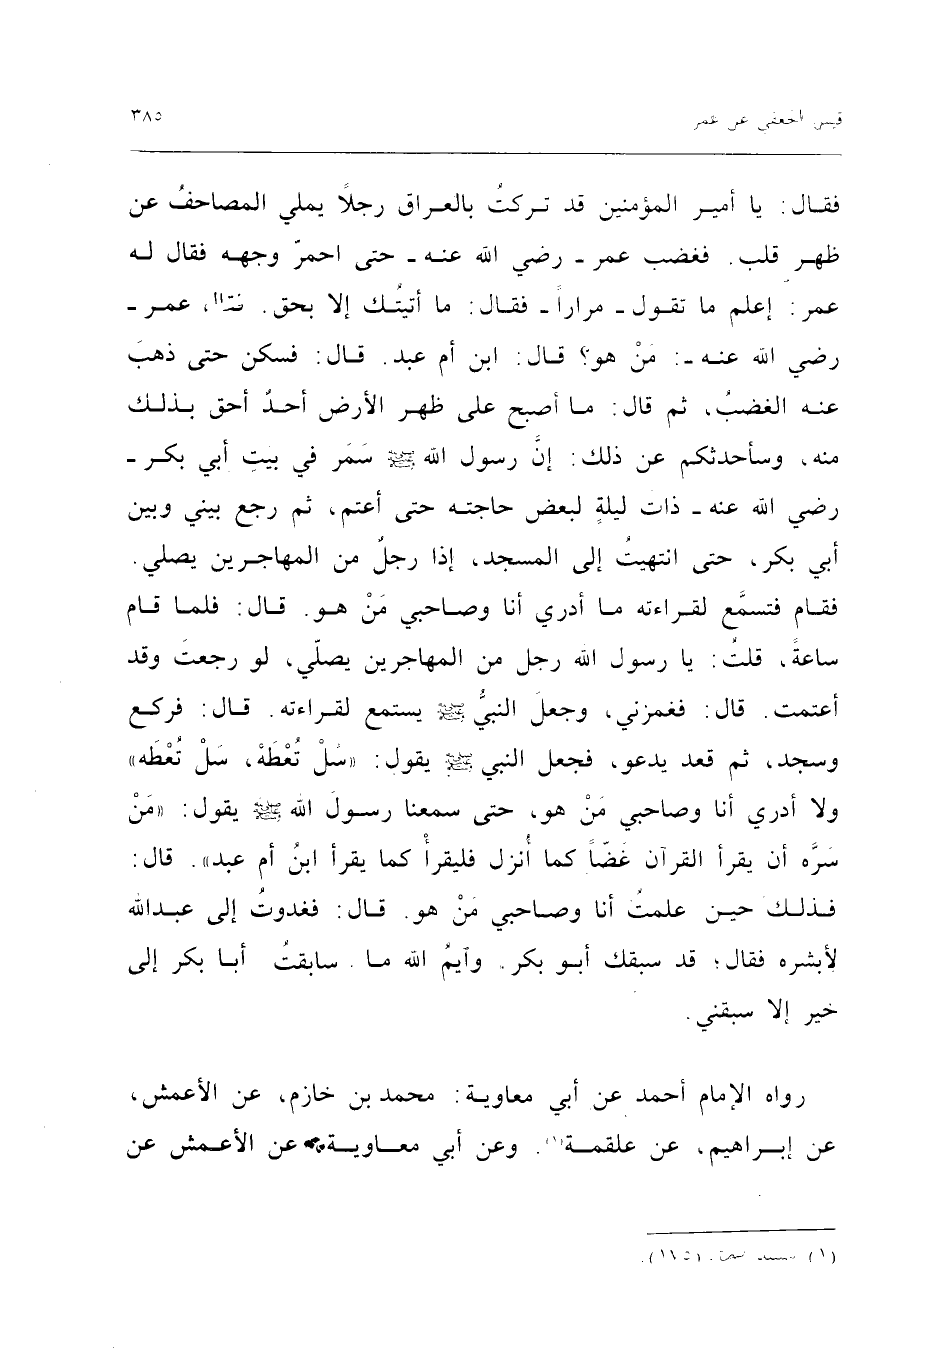 قيس الجعفي عن عمر ٣٨٥
فقال: يا أمير المؤمنين قد تركتُ بالعراق رجلًا يملي المصاحفُ عن
ظهر قلب. فغضب عمر ـ رضي الله عنه ـ حتى احمرّ وجهه فقال له
عمر: إعلم ما تقول ـ مراراً ـ فقال: ما أتيتُك إلا بحق. عمر ـ
رضي الله عنه ـ: مَنْ هو؟ قال: ابن أم عبد. قال: فسكن حتى ذهبَ
عنه الغضبُ، ثم قال: ما أصبح على ظهر الأرض أحدٌ أحق بذلك
منه، وسأحدثكم عن ذلك: إنَّ رسول الله ﷺ سَمَر في بيت أبي بكر ـ
رضي الله عنه ـ ذات ليلةٍ لبعض حاجته حتى أعتم، ثم رجع بيني وبين
أبي بكر، حتى انتهيتُ إلى المسجد، إذا رجلٌ من المهاجرين يصلي.
فقام فتسمَّع لقراءته ما أدري أنا وصاحبي مَنْ هو. قال: فلما قام
ساعةً، قلتُ: يا رسول الله رجل من المهاجرين يصلّي، لو رجعتَ وقد
أعتمت. قال: فغمزني، وجعلَ النبيُّ ﷺ يستمع لقراءته. قال: فركع
وسجد، ثم قعد يدعو، فجعل النبي ﷺ يقول: «سَلْ تُعْطَهْ، سَلْ تُعْطَه»
ولا أدري أنا وصاحبي مَنْ هو، حتى سمعنا رسولَ الله ﷺ يقول: «مَنْ
سَرَّه أن يقرأ القرآن غَضّاً كما أُنزل فليقرأْ كما يقرأ ابنُ أم عبد». قال:
فذلك حين علمتُ أنا وصاحبي مَنْ هو. قال: فغدوتُ إلى عبدالله
لأبشره فقال؛ قد سبقك أبو بكر. وآيمُ الله ما سابقتُ أبا بكر إلى
خير إلا سبقني.
رواه الإمام أحمد عن أبي معاوية: محمد بن خازم، عن الأعمش،
عن إبراهيم، عن علقمة(١). وعن أبي معاوية عن الأعمش عن
(١)